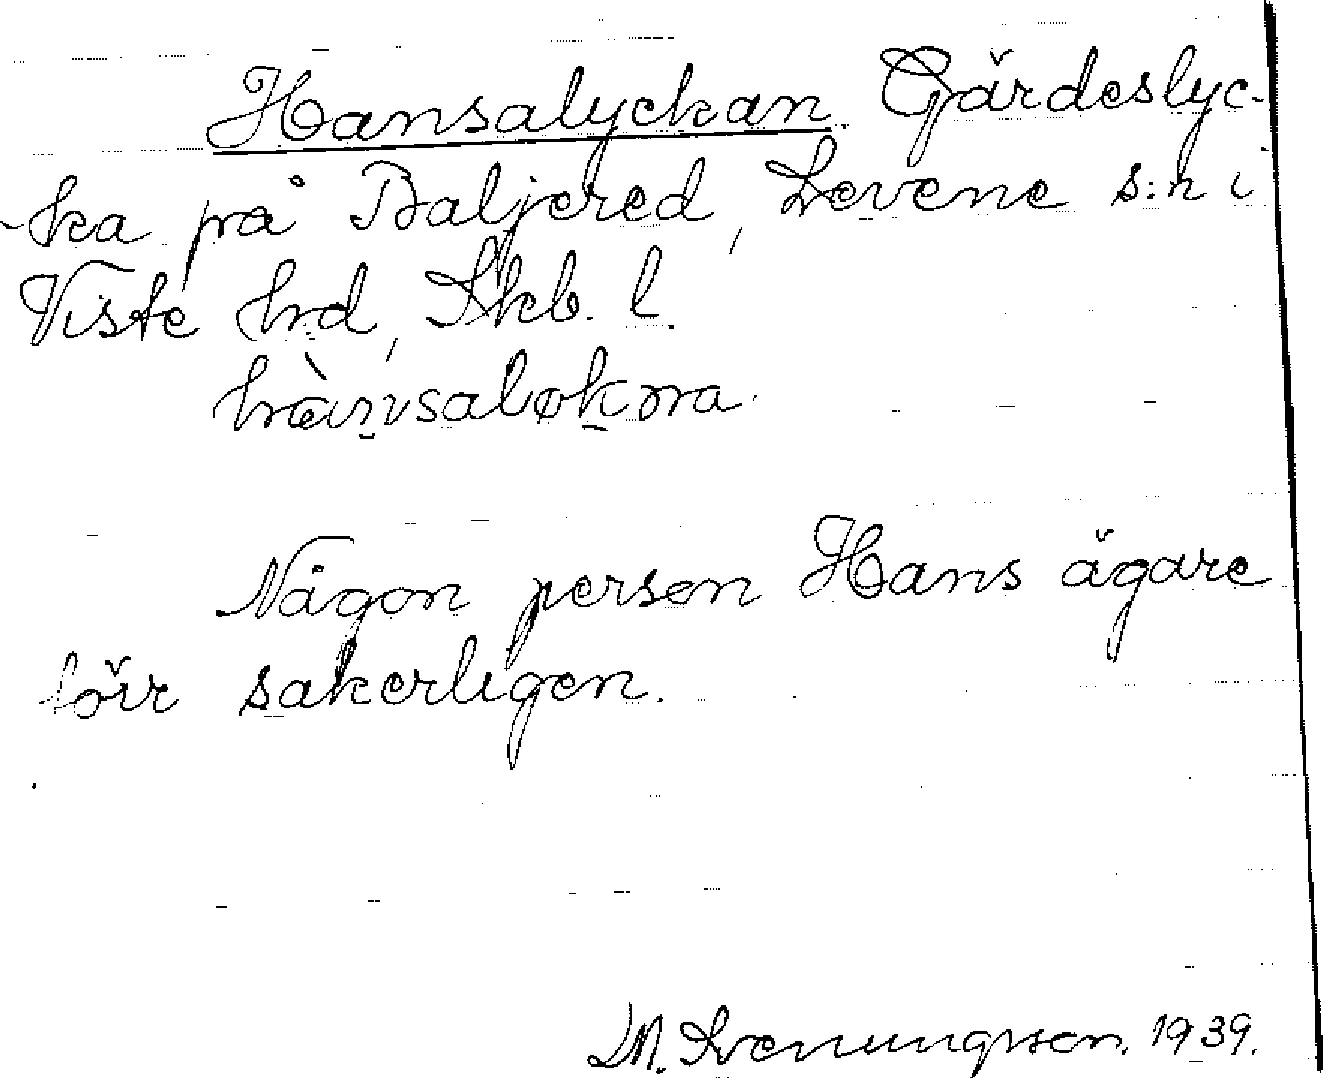 Hansalyckan Gärdeslyc-
ka på Baljered, Levene s:n i
Viste hd, Skb. l.
hànsaløkna.
Någon person Hans ägare
förr sakerligen.
M. Svenungsson. 1939.